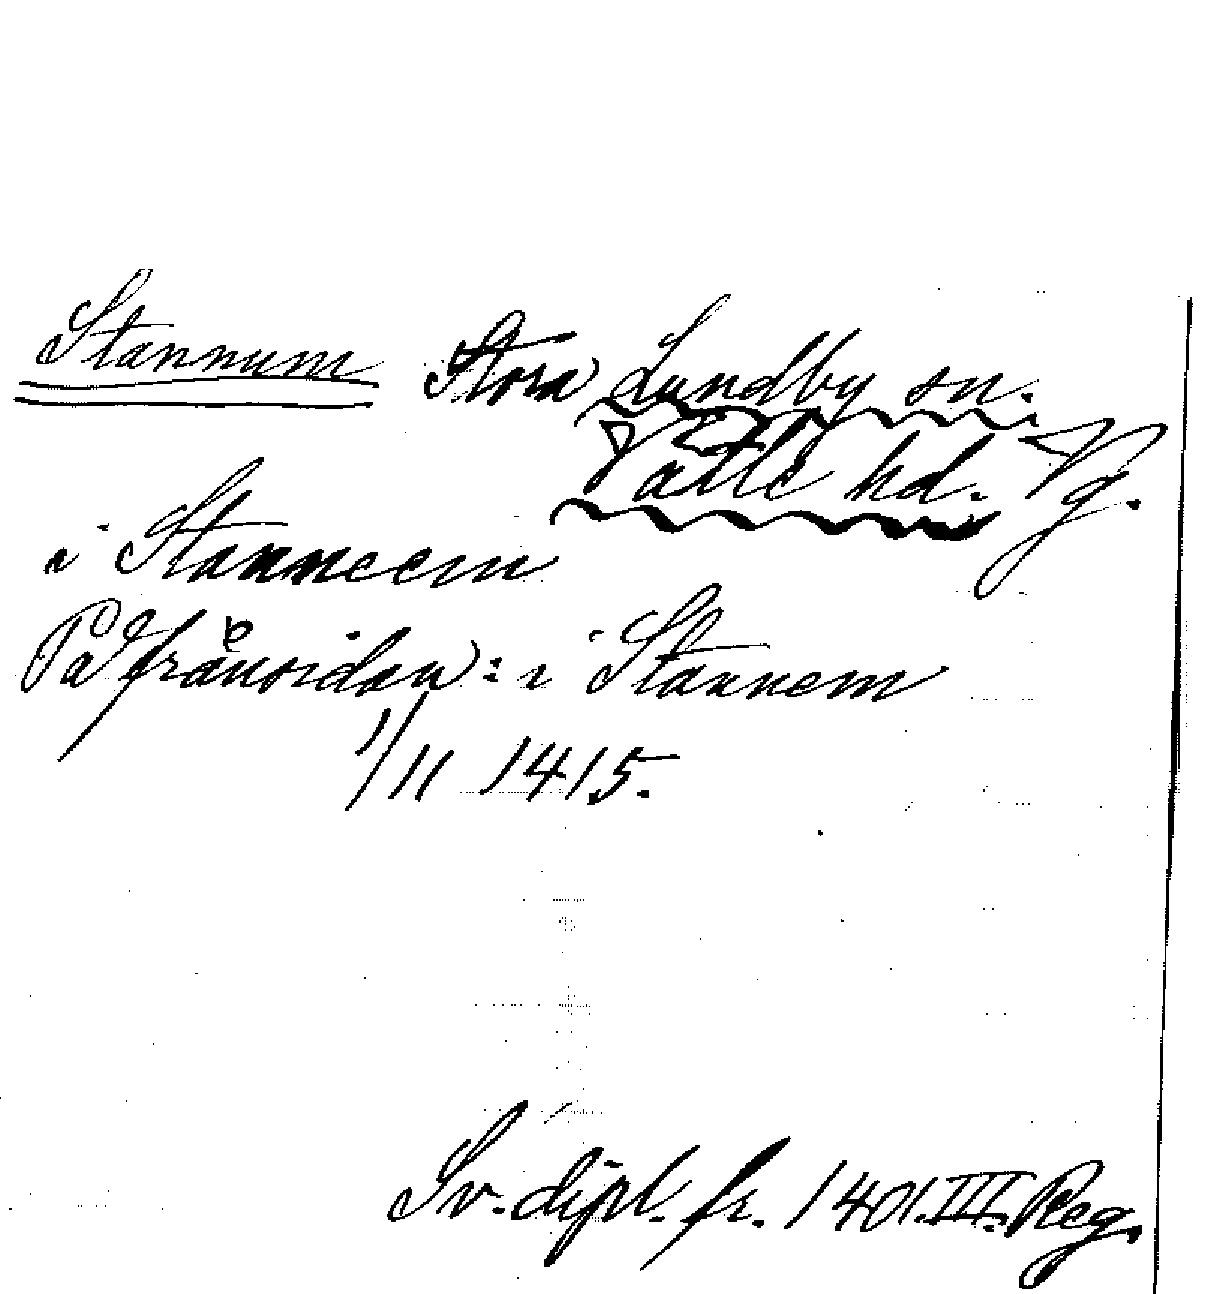 Stannum Stora Lundby sn.
Valle hd. Vg.
i Stanneem
På frånsidan: i Stannem
1/11 1415.
Sv. dipl. fr. 1401. III. Reg.